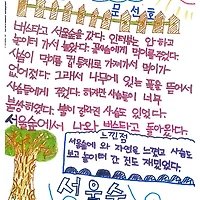 문선호
버스타고 서울숲을 갔다. 인터뷰는 안 하고
놀이터 가서 놀았다. 꽃사슴에게 먹이를 주었다.
사슴이 먹이를 금방 먹어서 먹이가
없어졌다. 그래서 나무에 있는 풀을 뜯어서
사슴들에게 주었다. 하면 사슴들이 너무
불쌍하였다. 뿔이 잘라진 사슴도 있었다.
서울숲에서 나와 버스타고 돌아왔다.
느낀점
서울숲에 와 자연을 느꼈고 사슴도
보고 놀이터 간 것도 재밌었다.
서울숲